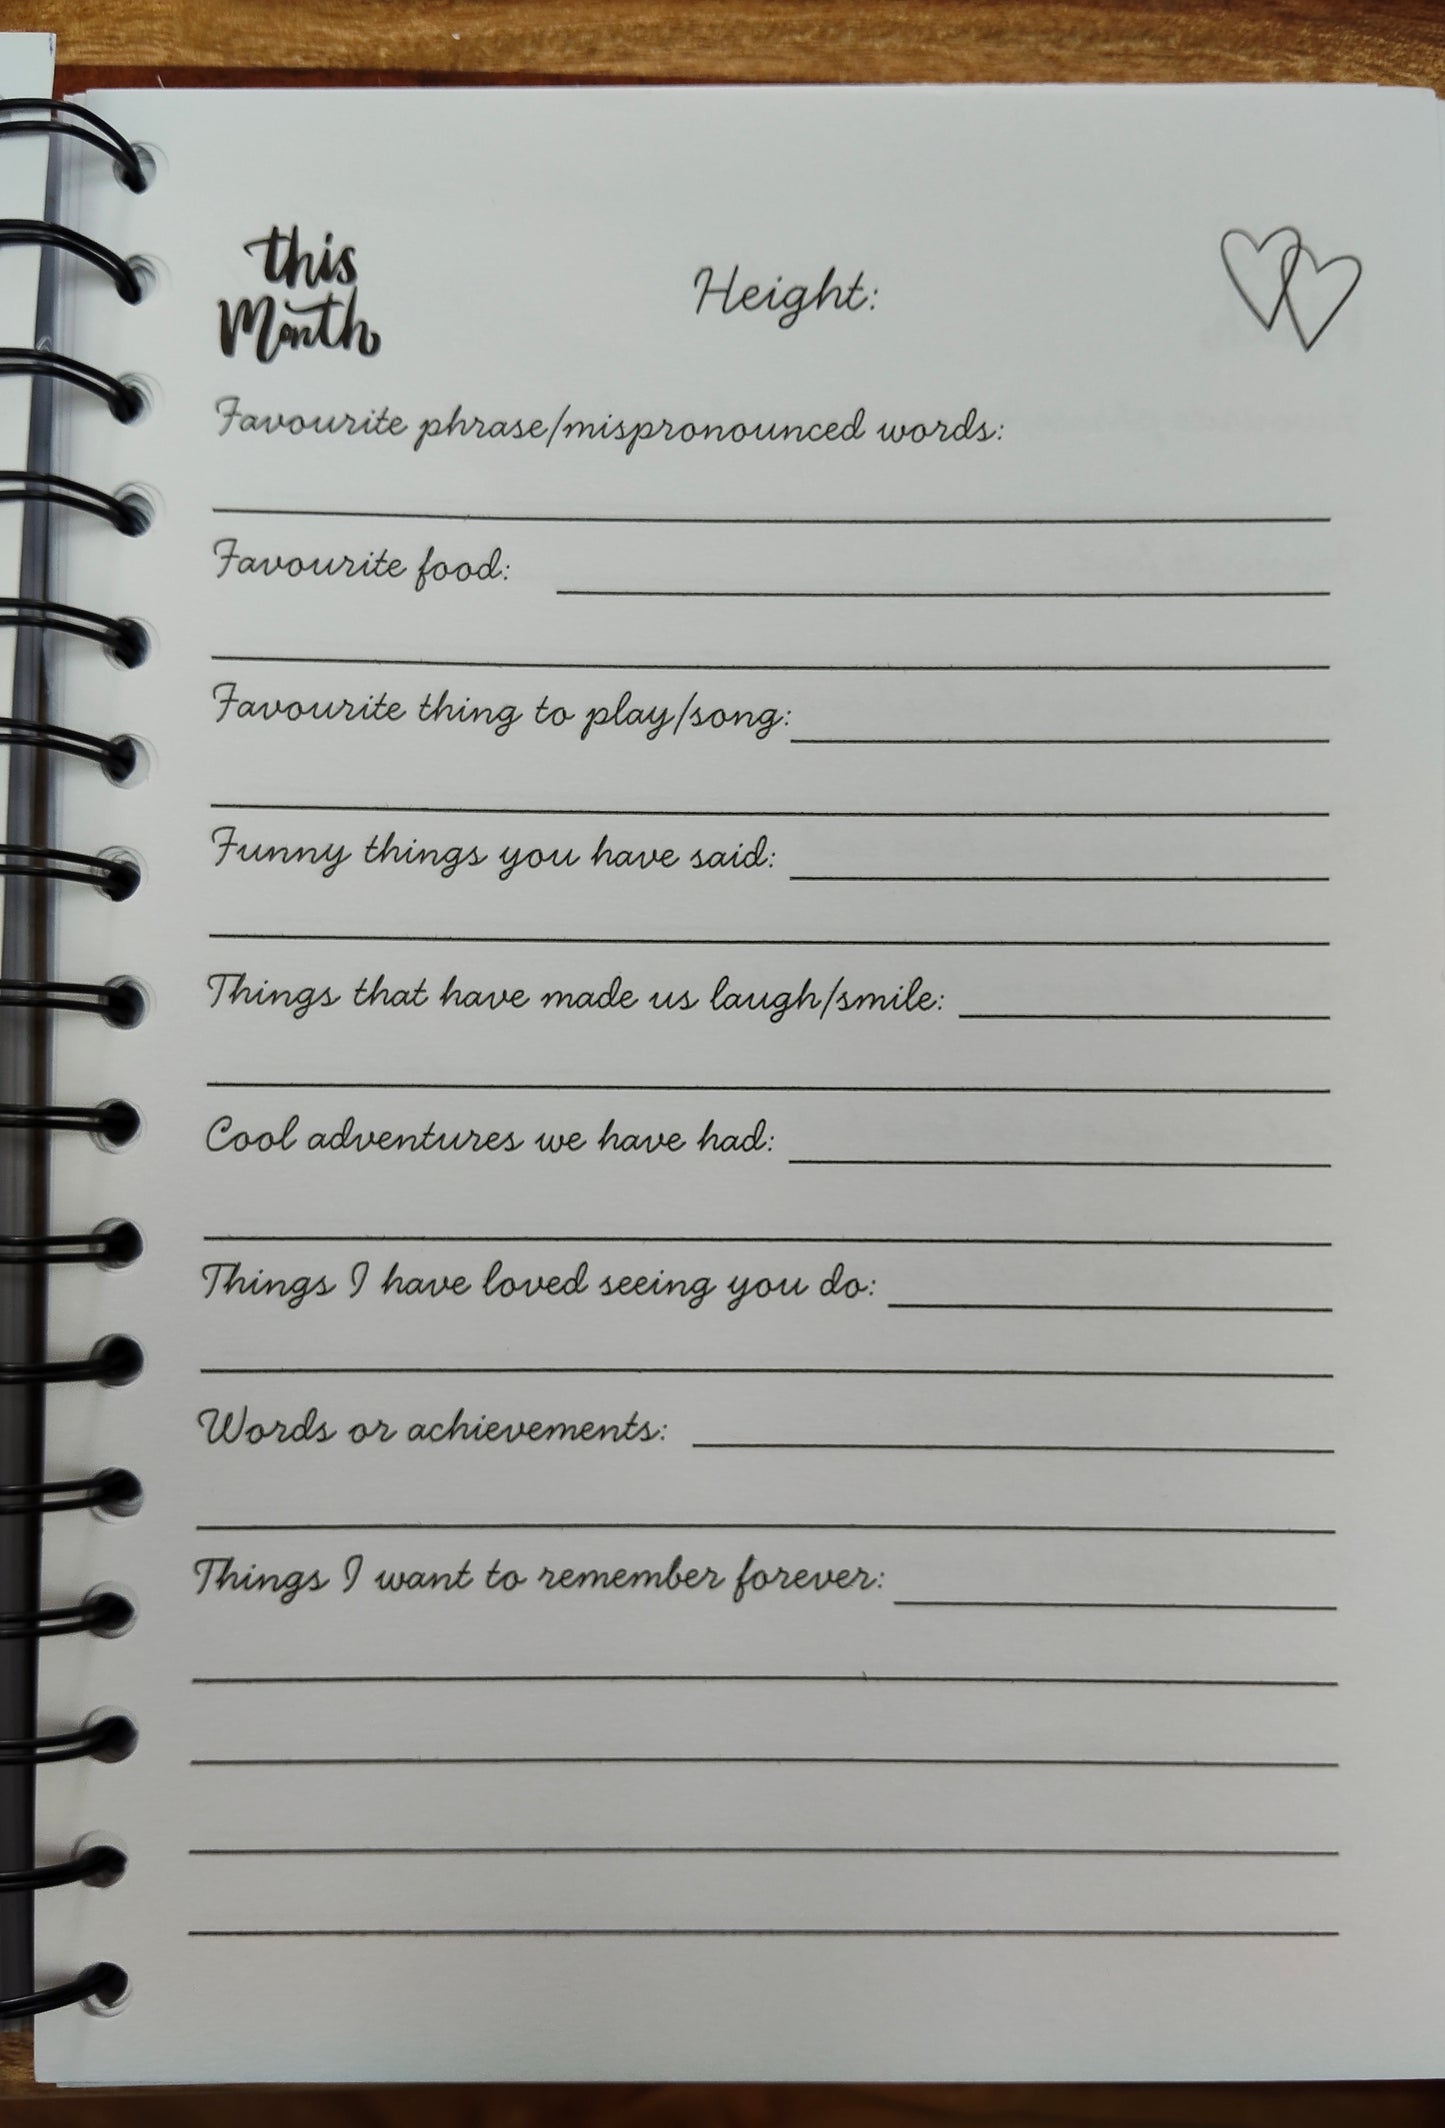 this
Month
Height:
Favourite phrase/mispronounced words:
Favourite food:
Favourite thing to play/song:
Funny things you have said:
Things that have made us laugh/smile:
Cool adventures we have had:
Things I have loved seeing you do:
Words or achievements:
Things I want to remember forever: